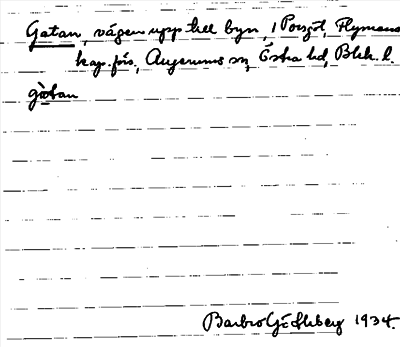 Gatan, vägen upp till byn, i Porsgöl, Flymens
kap. förs., Augerums sn, Östra hd, Blek. l.
gàtan
Barbro Göthberg 1934.